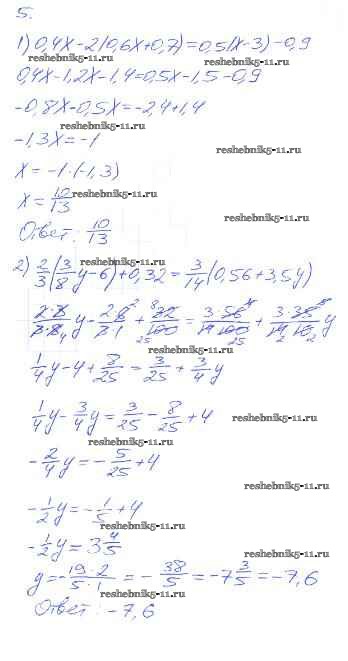 5.
1) 0,4x-2(0,6x+0,7)=0,5(x-3)-0,9
reshebnik5-11.ru
0,4x-1,2x-1,4=0,5x-1,5-0,9
reshebnik5-11.ru
-0,8x-0,5x=-2,4+1,4
reshebnik5-11.ru
-1,3x=-1
reshebnik5-11.ru
x=-1:(-1,3)
x=10/13
reshebnik5-11.ru
reshebnik5-11.ru
Ответ: 10/13
2) 2/3(3/8y-6)+0,32=3/14(0,56+3,5y)
reshebnik5-11.ru
2·3/3·8 y - 2·6/3·1 + 32/100 = 3·56/14·100 + 3·35/14·10 y
reshebnik5-11.ru
1/4y-4+8/25=3/25+3/4y
1/4y-3/4y=3/25-8/25+4
reshebnik5-11.ru
reshebnik5-11.ru
-2/4y=-5/25+4
reshebnik5-11.ru
-1/2y=-1/5+4
reshebnik5-11.ru
-1/2y=3 4/5
reshebnik5-11.ru
y=-19·2/5·1=-38/5=-7 3/5=-7,6
Ответ: -7,6